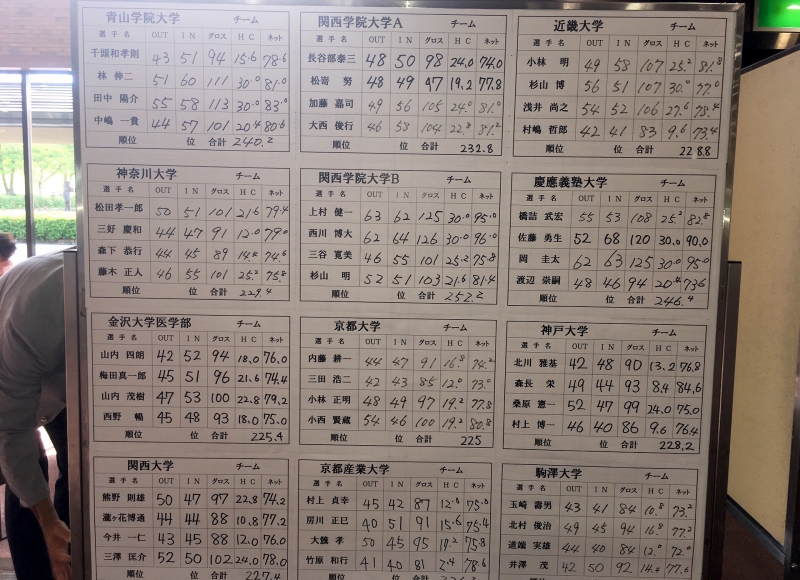 青山学院大学 チーム
選手名 OUT IN グロス HC ネット
千頭和孝則 43 51 94 15.6 78.6
林 伸二 51 60 111 30.0 81.0
田中 陽介 55 58 113 30.0 83.0
中嶋 一貴 44 57 101 20.4 80.6
順位 位 合計 240.2
関西学院大学A チーム
選手名 OUT IN グロス HC ネット
長谷部泰三 48 50 98 24.0 74.0
松嵜 努 48 49 97 19.2 77.8
加藤 嘉司 49 56 105 24.0 81.0
大西 俊行 46 58 104 22.8 81.2
順位 位 合計 232.8
近畿大学 チーム
選手名 OUT IN グロス HC ネット
小林 明 49 58 107 25.2 81.8
杉山 博 56 51 107 30.0 77.0
浅井 尚之 54 52 106 27.6 78.4
村嶋 哲郎 42 41 83 9.6 73.4
順位 位 合計 228.8
神奈川大学 チーム
選手名 OUT IN グロス HC ネット
松田孝一郎 50 51 101 21.6 79.4
三好 慶和 44 47 91 12.0 79.0
森下 恭行 44 45 89 14.4 74.6
藤木 正人 46 55 101 25.2 75.8
順位 位 合計 229.4
関西学院大学B チーム
選手名 OUT IN グロス HC ネット
上村 健一 63 62 125 30.0 95.0
西川 博大 62 64 126 30.0 96.0
三谷 寛美 46 55 101 25.2 75.8
杉山 明 52 51 103 21.6 81.4
順位 位 合計 252.2
慶應義塾大学 チーム
選手名 OUT IN グロス HC ネット
橋詰 武宏 55 53 108 25.2 82.8
佐藤 勇生 52 68 120 30.0 90.0
岡 圭太 62 63 125 30.0 95.0
渡辺 崇嗣 48 46 94 20.4 73.6
順位 位 合計 246.4
金沢大学医学部 チーム
選手名 OUT IN グロス HC ネット
山内 四朗 42 52 94 18.0 76.0
梅田真一郎 45 51 96 21.6 74.4
山内 茂樹 47 53 100 22.8 79.2
西野 暢 45 48 93 18.0 75.0
順位 位 合計 225.4
京都大学 チーム
選手名 OUT IN グロス HC ネット
内藤 耕一 44 47 91 16.8 74.2
三田 浩二 42 43 85 12.0 73.0
小林 正明 48 49 97 19.2 77.8
小西 賢蔵 54 46 100 19.2 80.8
順位 位 合計 225
神戸大学 チーム
選手名 OUT IN グロス HC ネット
北川 雅基 42 48 90 13.2 76.8
森長 栄 49 44 93 8.4 84.6
桑原 憲一 52 47 99 24.0 75.0
村上 博一 46 40 86 9.6 76.4
順位 位 合計 228.2
関西大学 チーム
選手名 OUT IN グロス HC ネット
熊野 則雄 50 47 97 22.8 74.2
瀧ヶ花博通 44 44 88 10.8 77.2
今井 一仁 43 45 88 12.0 76.0
三澤 匡介 52 50 102 24.0 78.0
順位 位 合計 227.4
京都産業大学 チーム
選手名 OUT IN グロス HC ネット
村上 貞幸 45 42 87 12.0 75.0
房川 正巳 40 51 91 15.6 75.4
大籔 孝 50 45 95 19.2 75.8
竹原 和行 41 40 81 2.4 78.6
順位 位 合計
駒澤大学 チーム
選手名 OUT IN グロス HC ネット
玉崎 壽男 43 41 84 10.8 73.2
北村 俊治 49 45 94 16.8 77.2
道端 実雄 44 40 84 12.0 72.0
井澤 茂 42 50 92 14.4 77.6
順位 位 合計